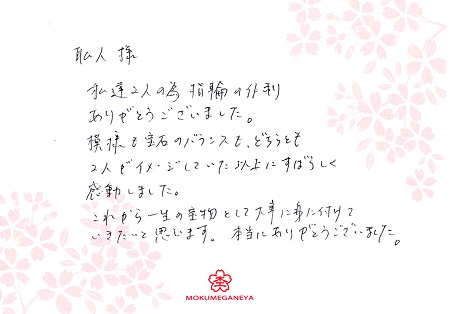 職人 様
私達2人の為 指輪の作製
ありがとうございました。
模様も宝石のバランスも、どちらとも
2人がイメージしていた以上にすばらしく
感動しました。
これから一生の宝物として大事に身に付けて
いきたいと思います。本当にありがとうございました。
MOKUMEGANEYA